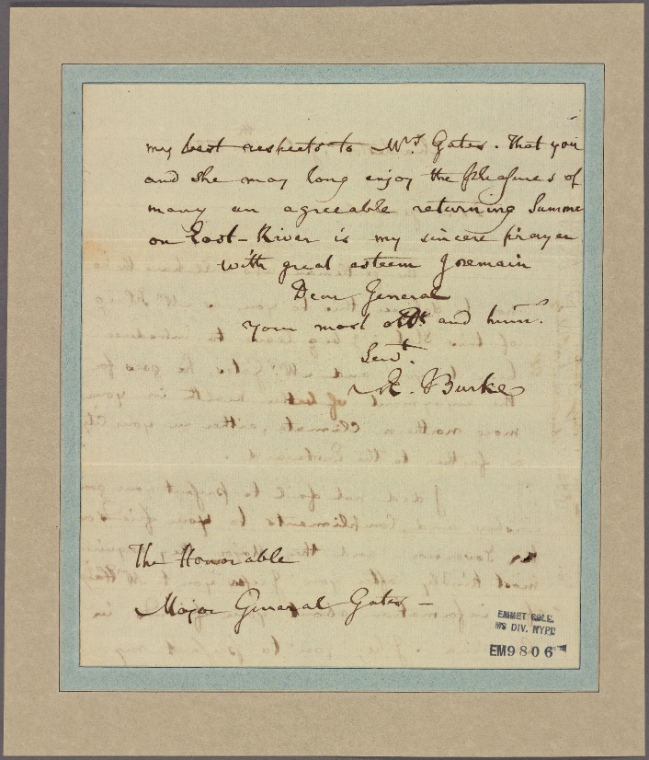 my best respects to Mrs. Gates. That you
and she may long enjoy the pleasures of
many an agreeable returning Summe
on East-River is my sincere prayer
with great esteem I remain
Dear General
your most obt. and hum.
Servt.
Æ. Burke
The Honorable
Major General Gates —
EMMET COLL.
MS DIV. NYPL
EM9806